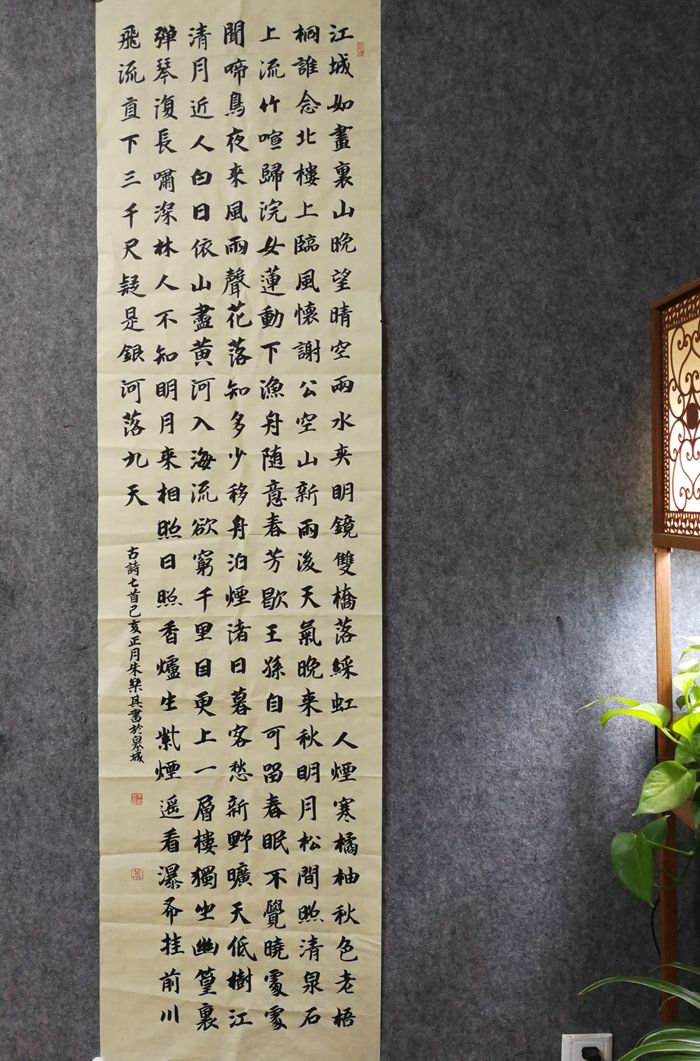 江城如畫裏山晚望晴空兩水夾明鏡雙橋落綵虹人煙寒橘柚秋色老梧
桐誰念北樓上臨風懷謝公空山新雨後天氣晚来秋明月松間照清泉石
上流竹喧歸浣女蓮動下漁舟随意春芳歇王孫自可留春眠不覺曉處處
聞啼鳥夜来風雨聲花落知多少移舟泊煙渚日暮客愁新野曠天低樹江
清月近人白日依山盡黄河入海流欲窮千里目更上一層樓獨坐幽篁裏
弹琴復長嘯深林人不知明月来相照日照香爐生紫煙遥看瀑布挂前川
飛流直下三千尺疑是銀河落九天
古詩七首己亥正月朱樂其書於皋城